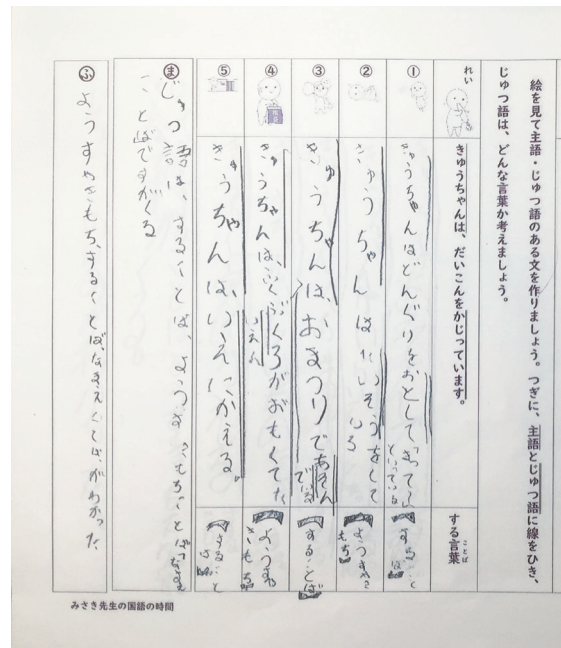 絵を見て主語・じゅつ語のある文を作りましょう。つぎに、主語とじゅつ語に線をひき、
じゅつ語は、どんな言葉か考えましょう。
れい
きゅうちゃんは、だいこんをかじっています。
する言葉
ことば
①
きゅうちゃんはどんぐりをおとして
といっている
することば
②
きゅうちゃんは
をして
いる
ようすや
きもち
③
きゅうちゃんは、おまつりで
あそん
でいる
することば
④
きゅうちゃんは、ふくぶくろがおもくてた
いへん
ようすや
きもち
⑤
きゅうちゃんは、いえにかえる。
すること
ば
ま
じゅつ語は、することば、ようすきもちことば
ことばですがくる
ふ
ようすやきもち、することば、なまえことばがわかった
みさき先生の国語の時間